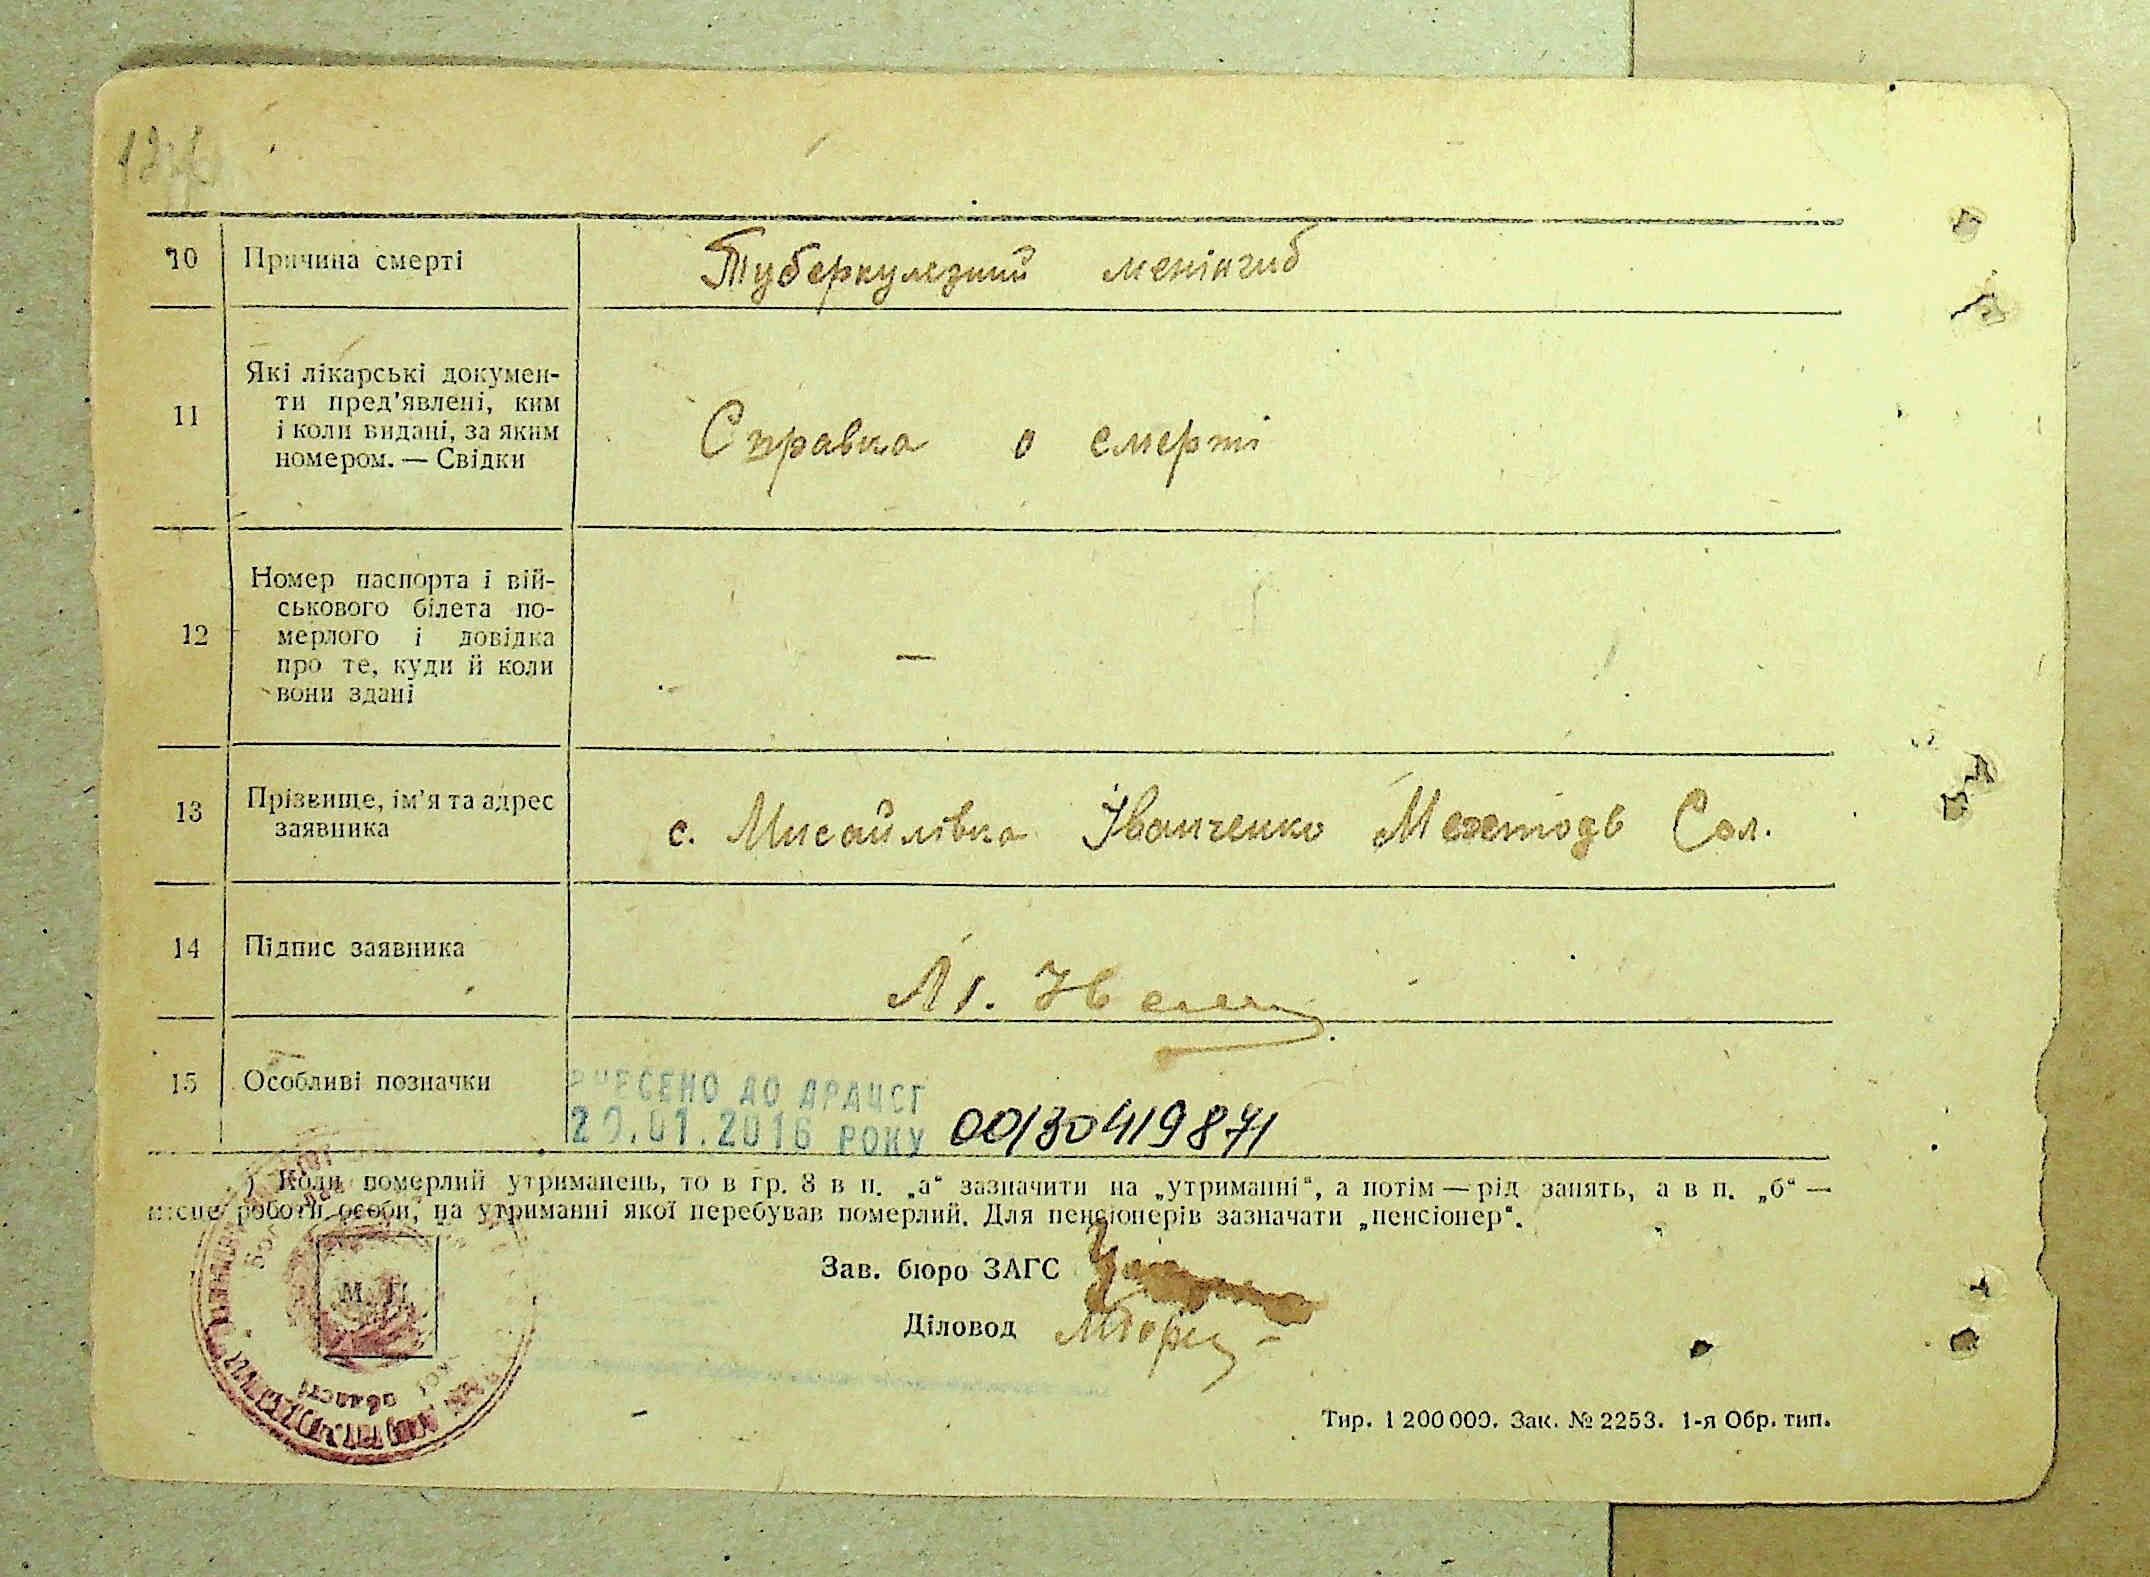 10 Причина смерті Туберкулезний менінгиб
11 Які лікарські докумен-
ти пред'явлені, ким
і коли видані, за яким
номером. — Свідки
Справка о смерті
12 Номер паспорта і вій-
ськового білета по-
мерлого і довідка
про те, куди й коли
вони здані
—
13 Прізвище, ім'я та адрес
заявника
с. Мисайлівка Іванченко Сол.
14 Підпис заявника
15 Особливі позначки
ВНЕСЕНО ДО ДРАЦСГ
20.01.2016 РОКУ 00130419871
) Коли померлий утриманець, то в гр. 8 в п. „а“ зазначити на „утриманні“, а потім — рід занять, а в п. „б“ —
місце роботи особи, на утриманні якої перебував померлий. Для пенсіонерів зазначати „пенсіонер“.
М. П.
області
Зав. бюро ЗАГС
Діловод
Тир. 1 200 000. Зак. № 2253. 1-я Обр. тип.